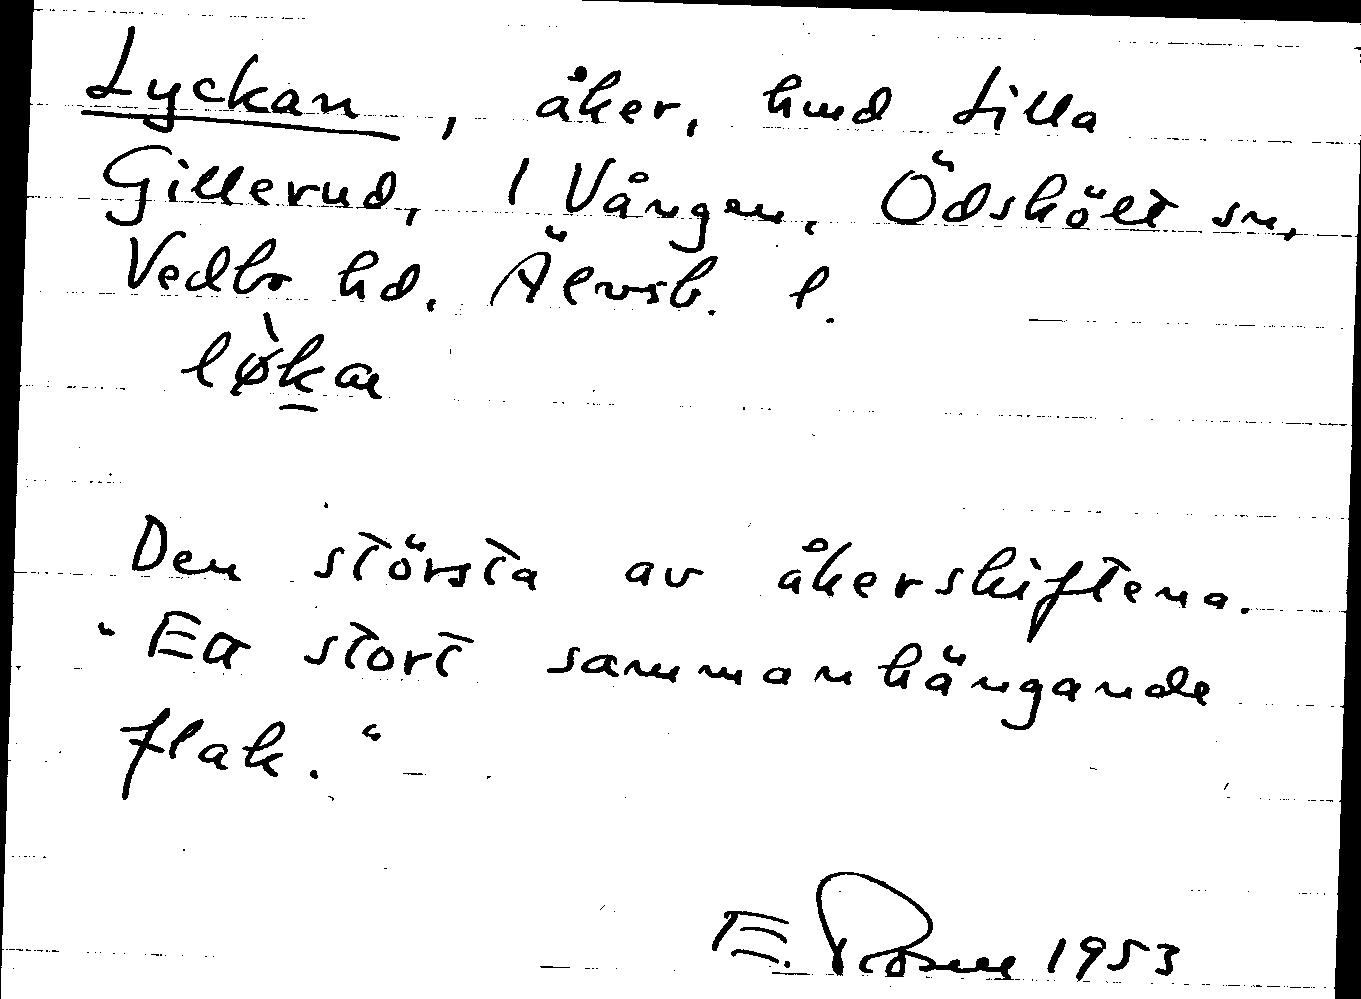 Lyckan, åker, hmd Lilla
Gillerud, 1 Vången, Ödskölt sn,
Vedbo hd. Älvsb. l.
lø̀kan
Den största av åkerskiftena.
"Ett stort sammanhängande
flak."
E. Rosell 1953